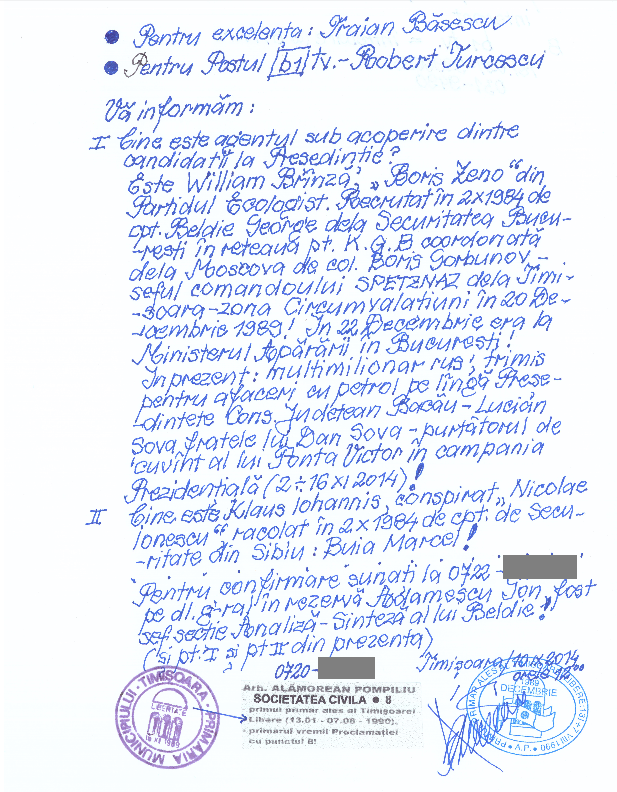 Pentru excelența: Traian Băsescu
Pentru Postul b1 tv. - Robert Turcescu
Vă informăm:
I Cine este agentul sub acoperire dintre
candidații la Președinție?
Este William Brînză, „Boris Zeno” din
Partidul Ecologist. Recrutat în 2X1984 de
cpt. Beldie George dela Securitatea Bucu-
-rești în rețeaua pt. K.G.B coordonată
dela Moscova de col. Boris Gorbunov -
șeful comandoului SPETZNAZ dela Timi-
-șoara-zona Circumvalațiuni în 20 De-
-cembrie 1989! În 22 Decembrie era la
Ministerul Apărării în București!
În prezent: multimilionar rus, trimis
pentru afaceri cu petrol pe lîngă Preșe-
-dintete Cons. Județean Bacău - Lucian
Șova, fratele lui Dan Șova - purtătorul de
cuvînt al lui Ponta Victor în campania
Prezidențială (2÷16 XI 2014)!
II Cine este Klaus Iohannis, conspirat „Nicolae
Ionescu” racolat în 2X1984 de cpt. de Secu-
-ritate din Sibiu: Buia Marcel!
Pentru confirmare sunați la 0722-
pe dl. g-ral în rezervă Adamescu Ion, fost
șef secție Analiză-Sinteză al lui Beldie!
(și pt. I și pt II din prezenta)
0720-
Timișoara/10 XI 2014
orele 12⁰⁰
PRIMĂRIA MUNICIPIULUI TIMIȘOARA
LIBERTATE
16 XII 1989
Arh. ALĂMOREAN POMPILIU
SOCIETATEA CIVILA • 8
primul primar ales al Timișoarei
Libere (13.01 - 07.08 - 1990),
primarul vremii Proclamației
cu punctul 8!
PRIMAR ALES AL TIMIȘOAREI LIBERE
1989
DECEMBRIE
A.P.